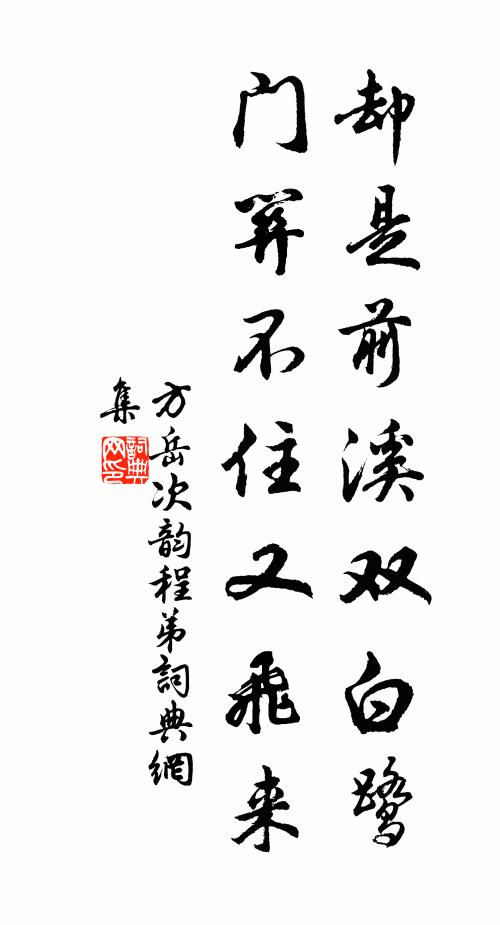 却是前溪双白鹭
门关不住又飞来
方岳次韵程弟詞典網
集
詞典网印